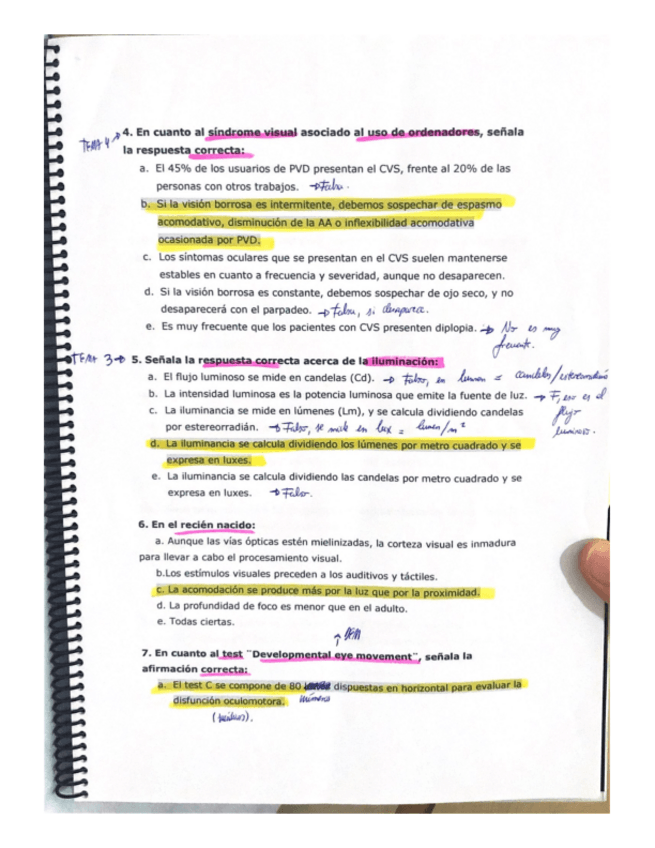 TEMA 4 → 4. En cuanto al síndrome visual asociado al uso de ordenadores, señala
la respuesta correcta:
a. El 45% de los usuarios de PVD presentan el CVS, frente al 20% de las
personas con otros trabajos. → Falso.
b. Si la visión borrosa es intermitente, debemos sospechar de espasmo
acomodativo, disminución de la AA o inflexibilidad acomodativa
ocasionada por PVD.
c. Los síntomas oculares que se presentan en el CVS suelen mantenerse
estables en cuanto a frecuencia y severidad, aunque no desaparecen.
d. Si la visión borrosa es constante, debemos sospechar de ojo seco, y no
desaparecerá con el parpadeo. → Falso, si desaparece.
e. Es muy frecuente que los pacientes con CVS presenten diplopia. → No es muy
frecuente.
TEMA 3 → 5. Señala la respuesta correcta acerca de la iluminación:
a. El flujo luminoso se mide en candelas (Cd). → Falso, en lumen = candelas/estereorradián
b. La intensidad luminosa es la potencia luminosa que emite la fuente de luz. → F, eso es el
flujo
luminoso.
c. La iluminancia se mide en lúmenes (Lm), y se calcula dividiendo candelas
por estereorradián. → Falso, se mide en lux = lumen/m²
d. La iluminancia se calcula dividiendo los lúmenes por metro cuadrado y se
expresa en luxes.
e. La iluminancia se calcula dividiendo las candelas por metro cuadrado y se
expresa en luxes. → Falso.
6. En el recién nacido:
a. Aunque las vías ópticas estén mielinizadas, la corteza visual es inmadura
para llevar a cabo el procesamiento visual.
b.Los estímulos visuales preceden a los auditivos y táctiles.
c. La acomodación se produce más por la luz que por la proximidad.
d. La profundidad de foco es menor que en el adulto.
e. Todas ciertas.
↑ DEM
7. En cuanto al test ¨Developmental eye movement¨, señala la
afirmación correcta:
a. El test C se compone de 80 dispuestas en horizontal para evaluar la
disfunción oculomotora. números